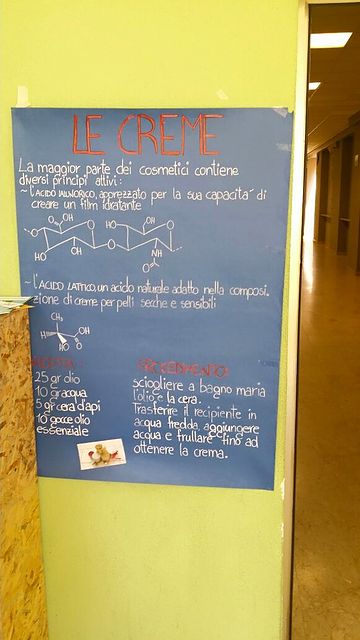 LE CREME
La maggior parte dei cosmetici contiene
diversi principi attivi:
~ l'ACIDO IALUORICO, apprezzato per la sua capacita' di
creare un film idratante
OH
HO
OH
O
O
O
O
HO
OH
NH
O
~ l'ACIDO LATTICO, un acido naturale adatto nella composi.
zione di creme per pelli secche e sensibili
CH3
H
OH
HO
O
RICETTA:
25 gr olio
10 gr acqua
5 gr cera d'api
10 gocce olio
essenziale
PROCEDIMENTO:
sciogliere a bagno maria
l'olio e la cera.
Trasferire il recipiente in
acqua fredda, aggiungere
acqua e frullare fino ad
ottenere la crema.